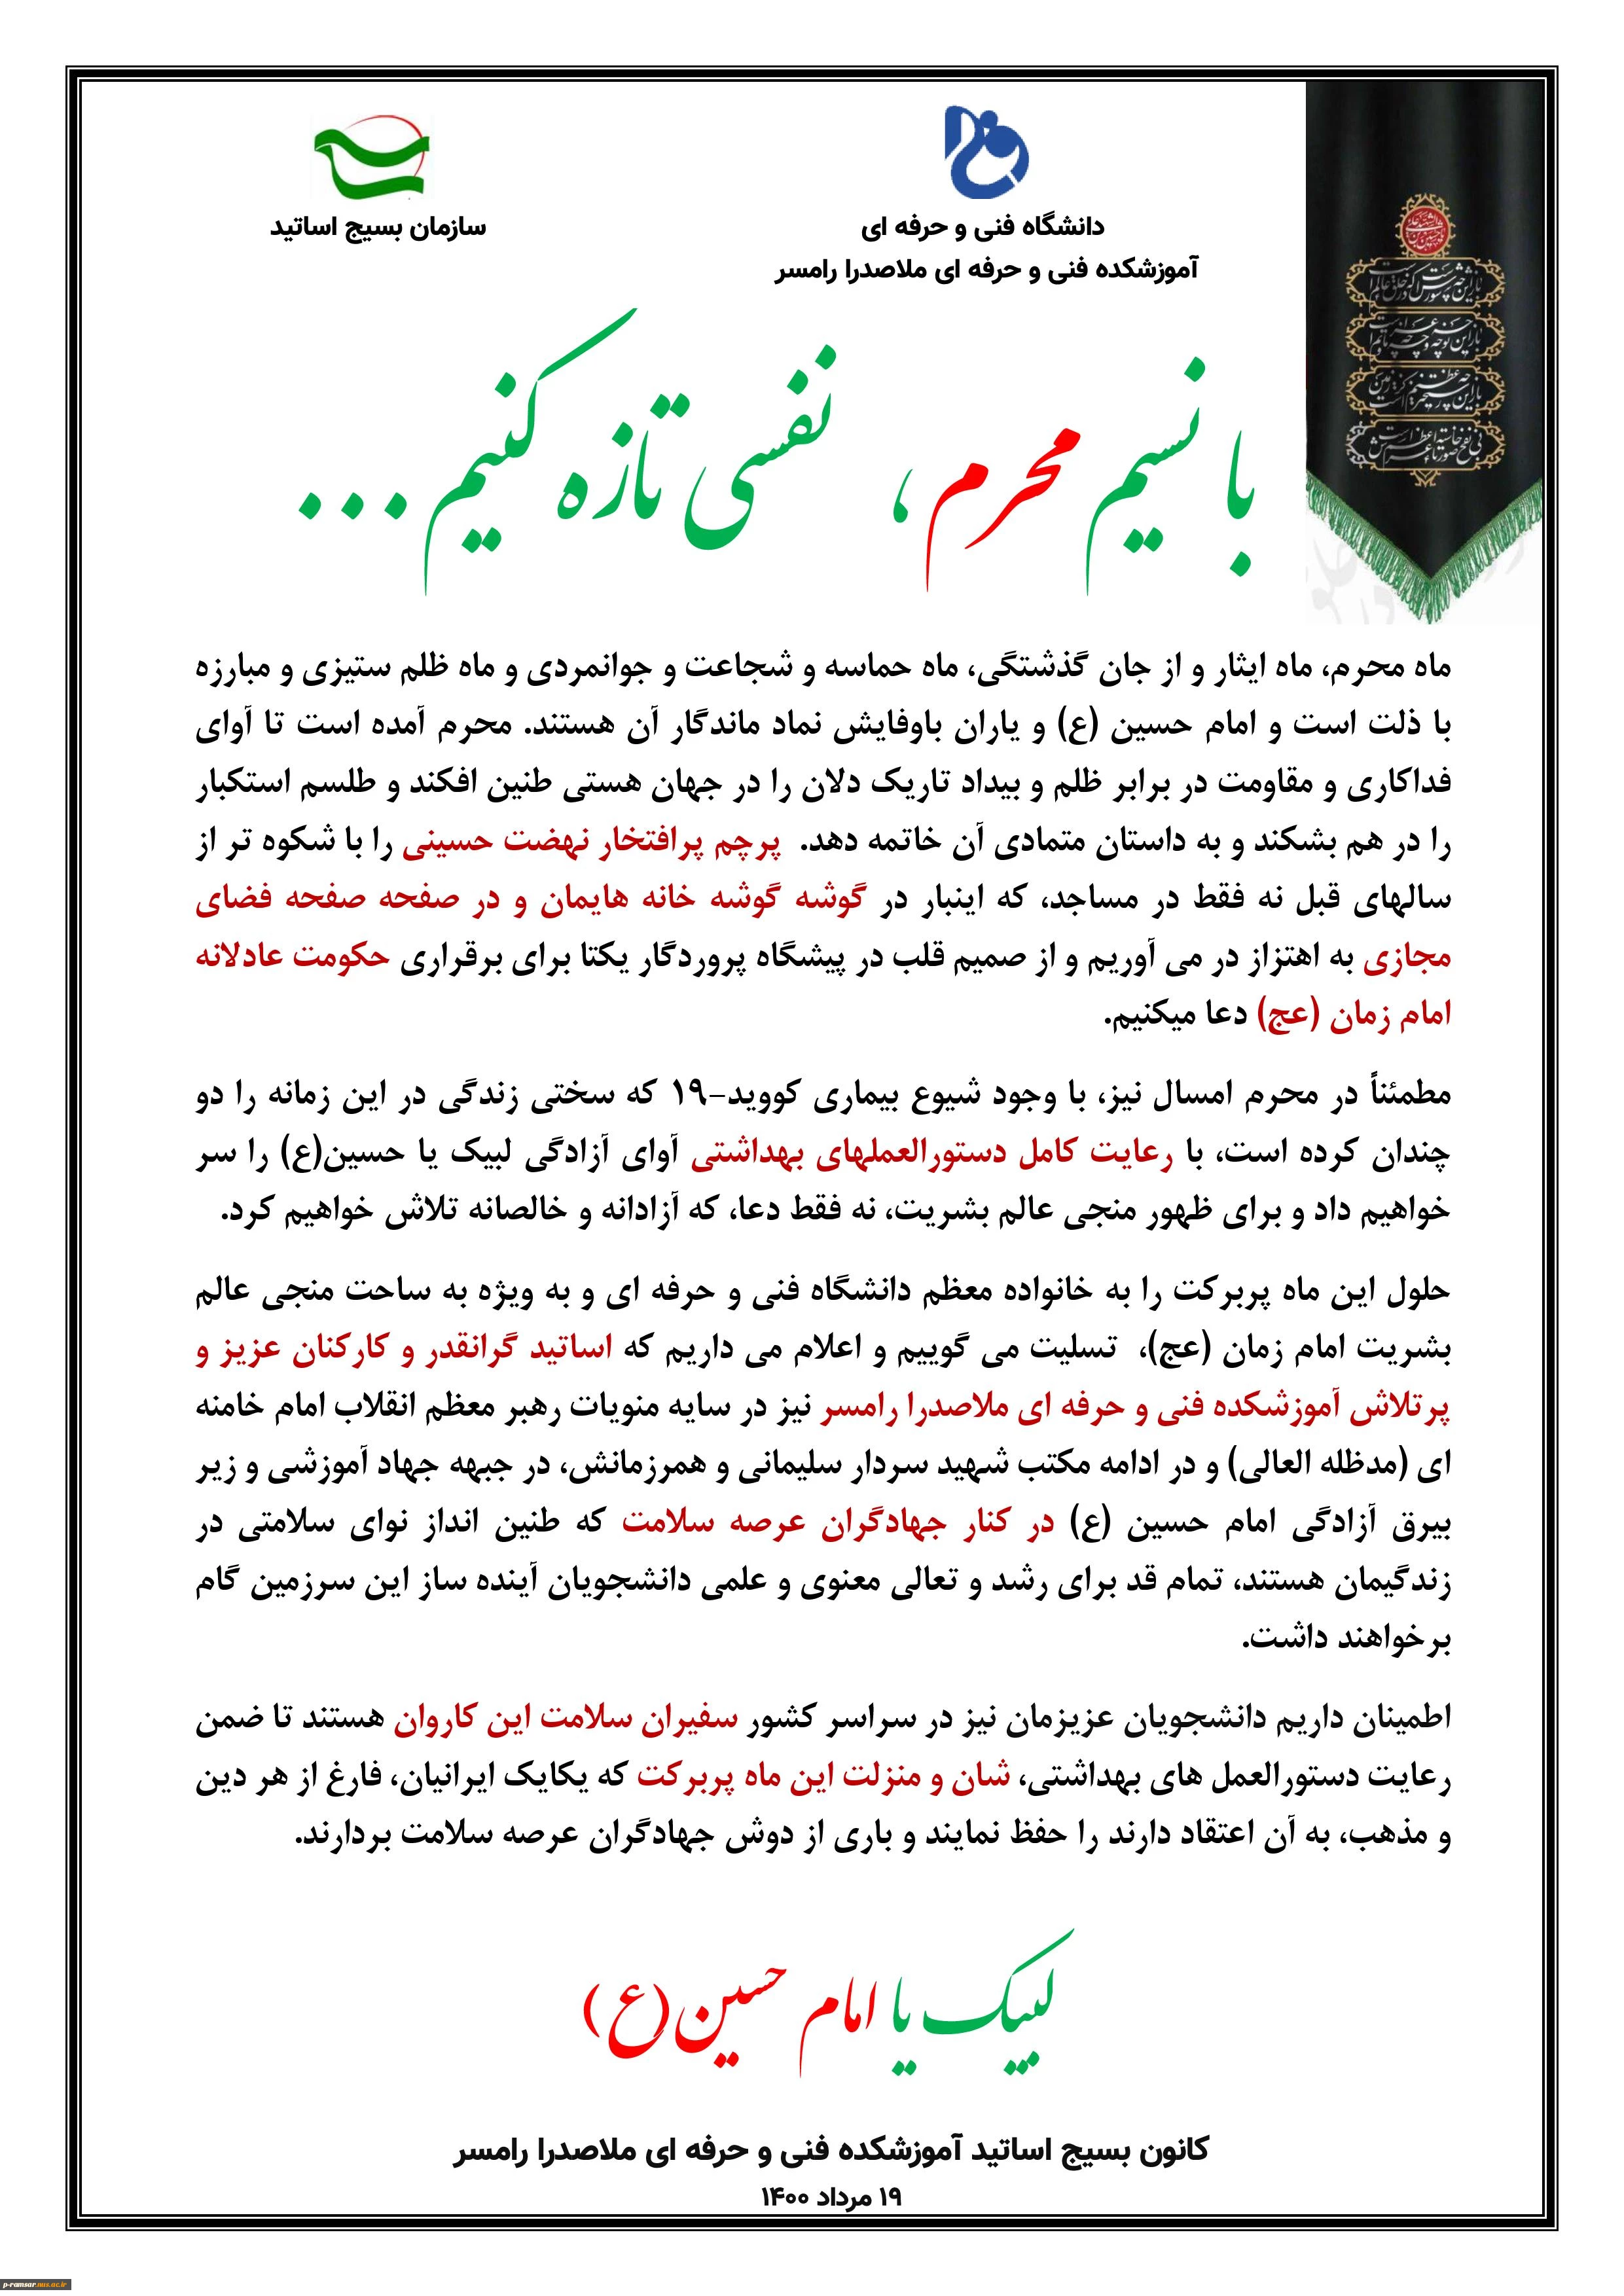 دانشگاه فنی و حرفه ای
آموزشکده فنی و حرفه ای ملاصدرا رامسر
سازمان بسیج اساتید
با نسیم محرم ، نفسی تازه کنیم ...
ماه محرم، ماه ایثار و از جان گذشتگی، ماه حماسه و شجاعت و جوانمردی و ماه ظلم ستیزی و مبارزه
با ذلت است و امام حسین (ع) و یاران باوفایش نماد ماندگار آن هستند. محرم آمده است تا آوای
فداکاری و مقاومت در برابر ظلم و بیداد تاریک دلان را در جهان هستی طنین افکند و طلسم استکبار
را در هم بشکند و به داستان متمادی آن خاتمه دهد. پرچم پرافتخار نهضت حسینی را با شکوه تر از
سالهای قبل نه فقط در مساجد، که اینبار در گوشه گوشه خانه هایمان و در صفحه صفحه فضای
مجازی به اهتزاز در می آوریم و از صمیم قلب در پیشگاه پروردگار یکتا برای برقراری حکومت عادلانه
امام زمان (عج) دعا میکنیم.
مطمئناً در محرم امسال نیز، با وجود شیوع بیماری کووید-۱۹ که سختی زندگی در این زمانه را دو
چندان کرده است، با رعایت کامل دستورالعملهای بهداشتی آوای آزادگی لبیک یا حسین(ع) را سر
خواهیم داد و برای ظهور منجی عالم بشریت، نه فقط دعا، که آزادانه و خالصانه تلاش خواهیم کرد.
حلول این ماه پربرکت را به خانواده معظم دانشگاه فنی و حرفه ای و به ویژه به ساحت منجی عالم
بشریت امام زمان (عج)، تسلیت می گوییم و اعلام می داریم که اساتید گرانقدر و کارکنان عزیز و
پرتلاش آموزشکده فنی و حرفه ای ملاصدرا رامسر نیز در سایه منویات رهبر معظم انقلاب امام خامنه
ای (مدظله العالی) و در ادامه مکتب شهید سردار سلیمانی و همرزمانش، در جبهه جهاد آموزشی و زیر
بیرق آزادگی امام حسین (ع) در کنار جهادگران عرصه سلامت که طنین انداز نوای سلامتی در
زندگیمان هستند، تمام قد برای رشد و تعالی معنوی و علمی دانشجویان آینده ساز این سرزمین گام
برخواهند داشت.
اطمینان داریم دانشجویان عزیزمان نیز در سراسر کشور سفیران سلامت این کاروان هستند تا ضمن
رعایت دستورالعمل های بهداشتی، شان و منزلت این ماه پربرکت که یکایک ایرانیان، فارغ از هر دین
و مذهب، به آن اعتقاد دارند را حفظ نمایند و باری از دوش جهادگران عرصه سلامت بردارند.
لبیک یا امام حسین(ع)
کانون بسیج اساتید آموزشکده فنی و حرفه ای ملاصدرا رامسر
۱۹ مرداد ۱۴۰۰
p-ramsar.nus.ac.ir